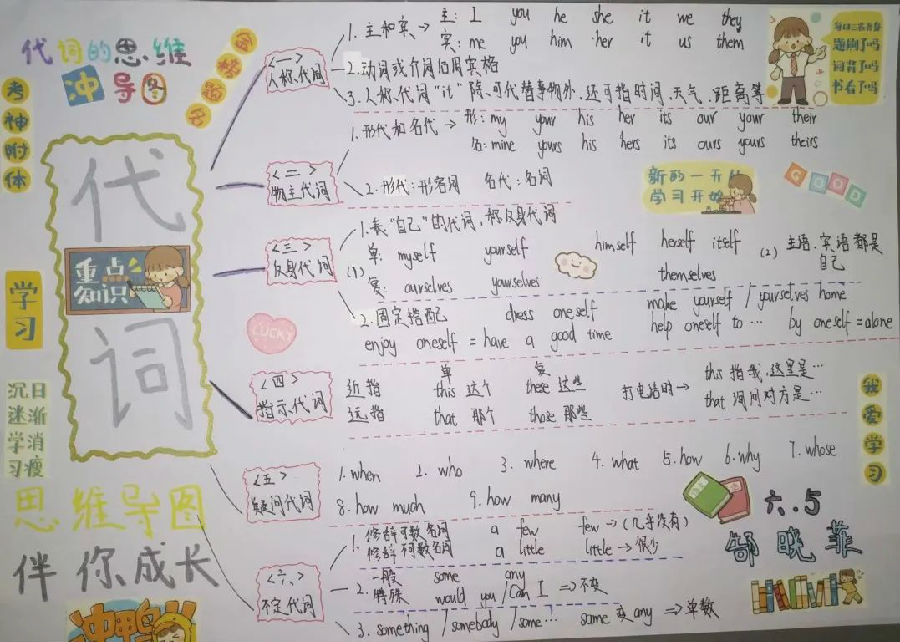 代词的思维
冲导图
考神附体
学习
沉迷学习
日渐消瘦
代词
重点
知识
思维导图
伴你成长
LUCKY
<一>
人称代词
1. 主和宾 → 主: I you he she it we they
宾: me you him her it us them
2. 动词或介词后用宾格
3. 人称代词 "it" 除可代替事物外,还可指时间,天气,距离等
题刷了吗
词背了吗
书看了吗
<二>
物主代词
1. 形代和名代 → 形: my your his her its our your their
名: mine yours his hers its ours yours theirs
2. 形代:形名词 名代:名词
新的一天从
学习开始
GOOD
<三>
反身代词
1. 表"自己"的代词,称反身代词
(1) 单: myself yourself himself herself itself
复: ourselves yourselves themselves
(2) 主语,宾语都是
自己
2. 固定搭配 dress oneself make yourself / yourselves home
enjoy oneself = have a good time help oneself to … by oneself = alone
<四>
指示代词
单 复
近指 this 这个 these 这些
远指 that 那个 those 那些
打电话时 → this 指我,这里是…
that 询问对方是…
<五>
疑问代词
1. when 2. who 3. where 4. what 5. how 6. why 7. whose
8. how much 9. how many
我爱学习
六.5
邹晓菲
<六>
不定代词
1. 修饰可数名词 a few few → (几乎没有)
修饰不可数名词 a little little → 很少
2. 一般 some any
特殊 would you / Can I ⇒ 不变
3. something / somebody / some… some 变 any ⇒ 单数
冲鸭